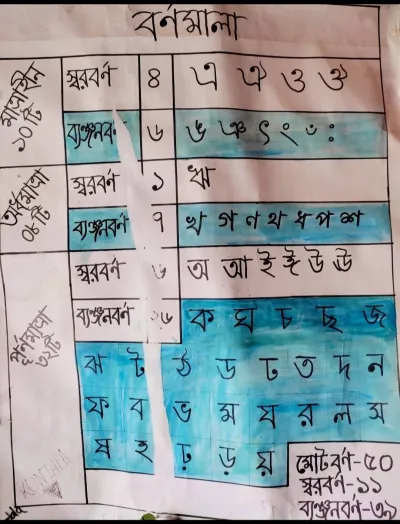 বর্ণমালা
মাত্রাহীন
১০ টি
স্বরবর্ণ ৪ এ ঐ ও ঔ
ব্যঞ্জনবর্ণ ৬ ঙ ঞ ৎ ং ঃ ঁ
অর্ধমাত্রা
০৮ টি
স্বরবর্ণ ১ ঋ
ব্যঞ্জনবর্ণ ৭ খ গ ণ থ ধ প শ
পূর্ণমাত্রা
৩২টি
স্বরবর্ণ ৬ অ আ ই ঈ উ ঊ
ব্যঞ্জনবর্ণ ২৬ ক ঘ চ ছ জ
ঝ ট ঠ ড ঢ ত দ ন
ফ ব ভ ম য র ল স
ষ হ ঢ় ড় য়
মোট বর্ণ-৫০
স্বরবর্ণ-১১
ব্যঞ্জনবর্ণ-৩৯